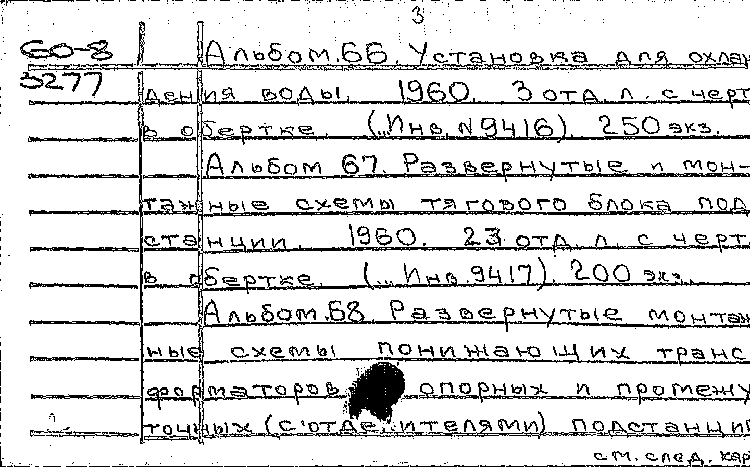 3
60-8 Альбом.66. Установка для охлаж
5277 дения воды. 1960. 3 отд. л. с черт
в обертке. (Инв. N9416). 250 экз.
Альбом 67. Развернутые и мон-
тажные схемы тягового блока под
станции. 1960. 23 отд. л. с черт
в обертке (... Инв. 9417). 200 экз.
Альбом.68. Развернутые монтаж
ные схемы понижающих транс
форматоров опорных и промежу
точных (с отделителями) подстанций
см. след. кар